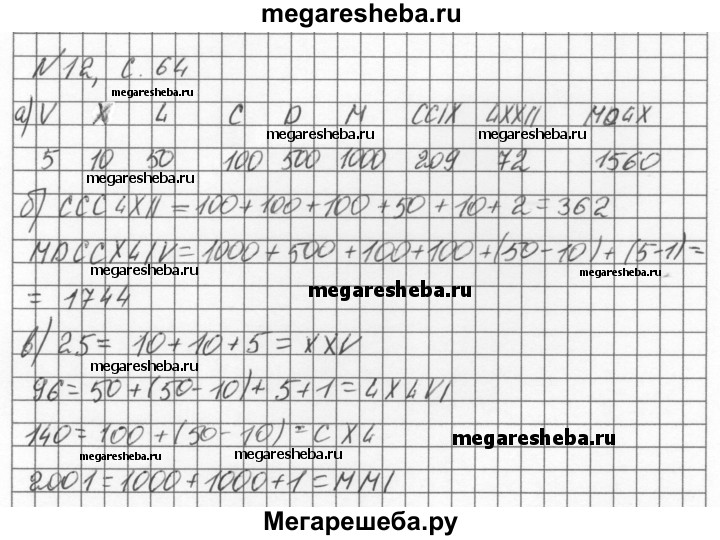 megaresheba.ru
N 12, с. 64
megaresheba.ru
а) V X 4 C D M CCIX 4XXII MD4X
megaresheba.ru megaresheba.ru
5 10 50 100 500 1000 209 72 1560
megaresheba.ru
б) CCC4XII = 100+100+100+50+10+2=362
MDCCX4IV=1000+500+100+100+(50-10)+(5-1)=
megaresheba.ru megaresheba.ru
= 1744
megaresheba.ru
в) 25= 10+10+5=XXV
megaresheba.ru
96=50+(50-10)+5+1=4X4VI
140=100+(50-10)=CX4
megaresheba.ru
megaresheba.ru megaresheba.ru
2001=1000+1000+1=MMI
Мегарешеба.ру